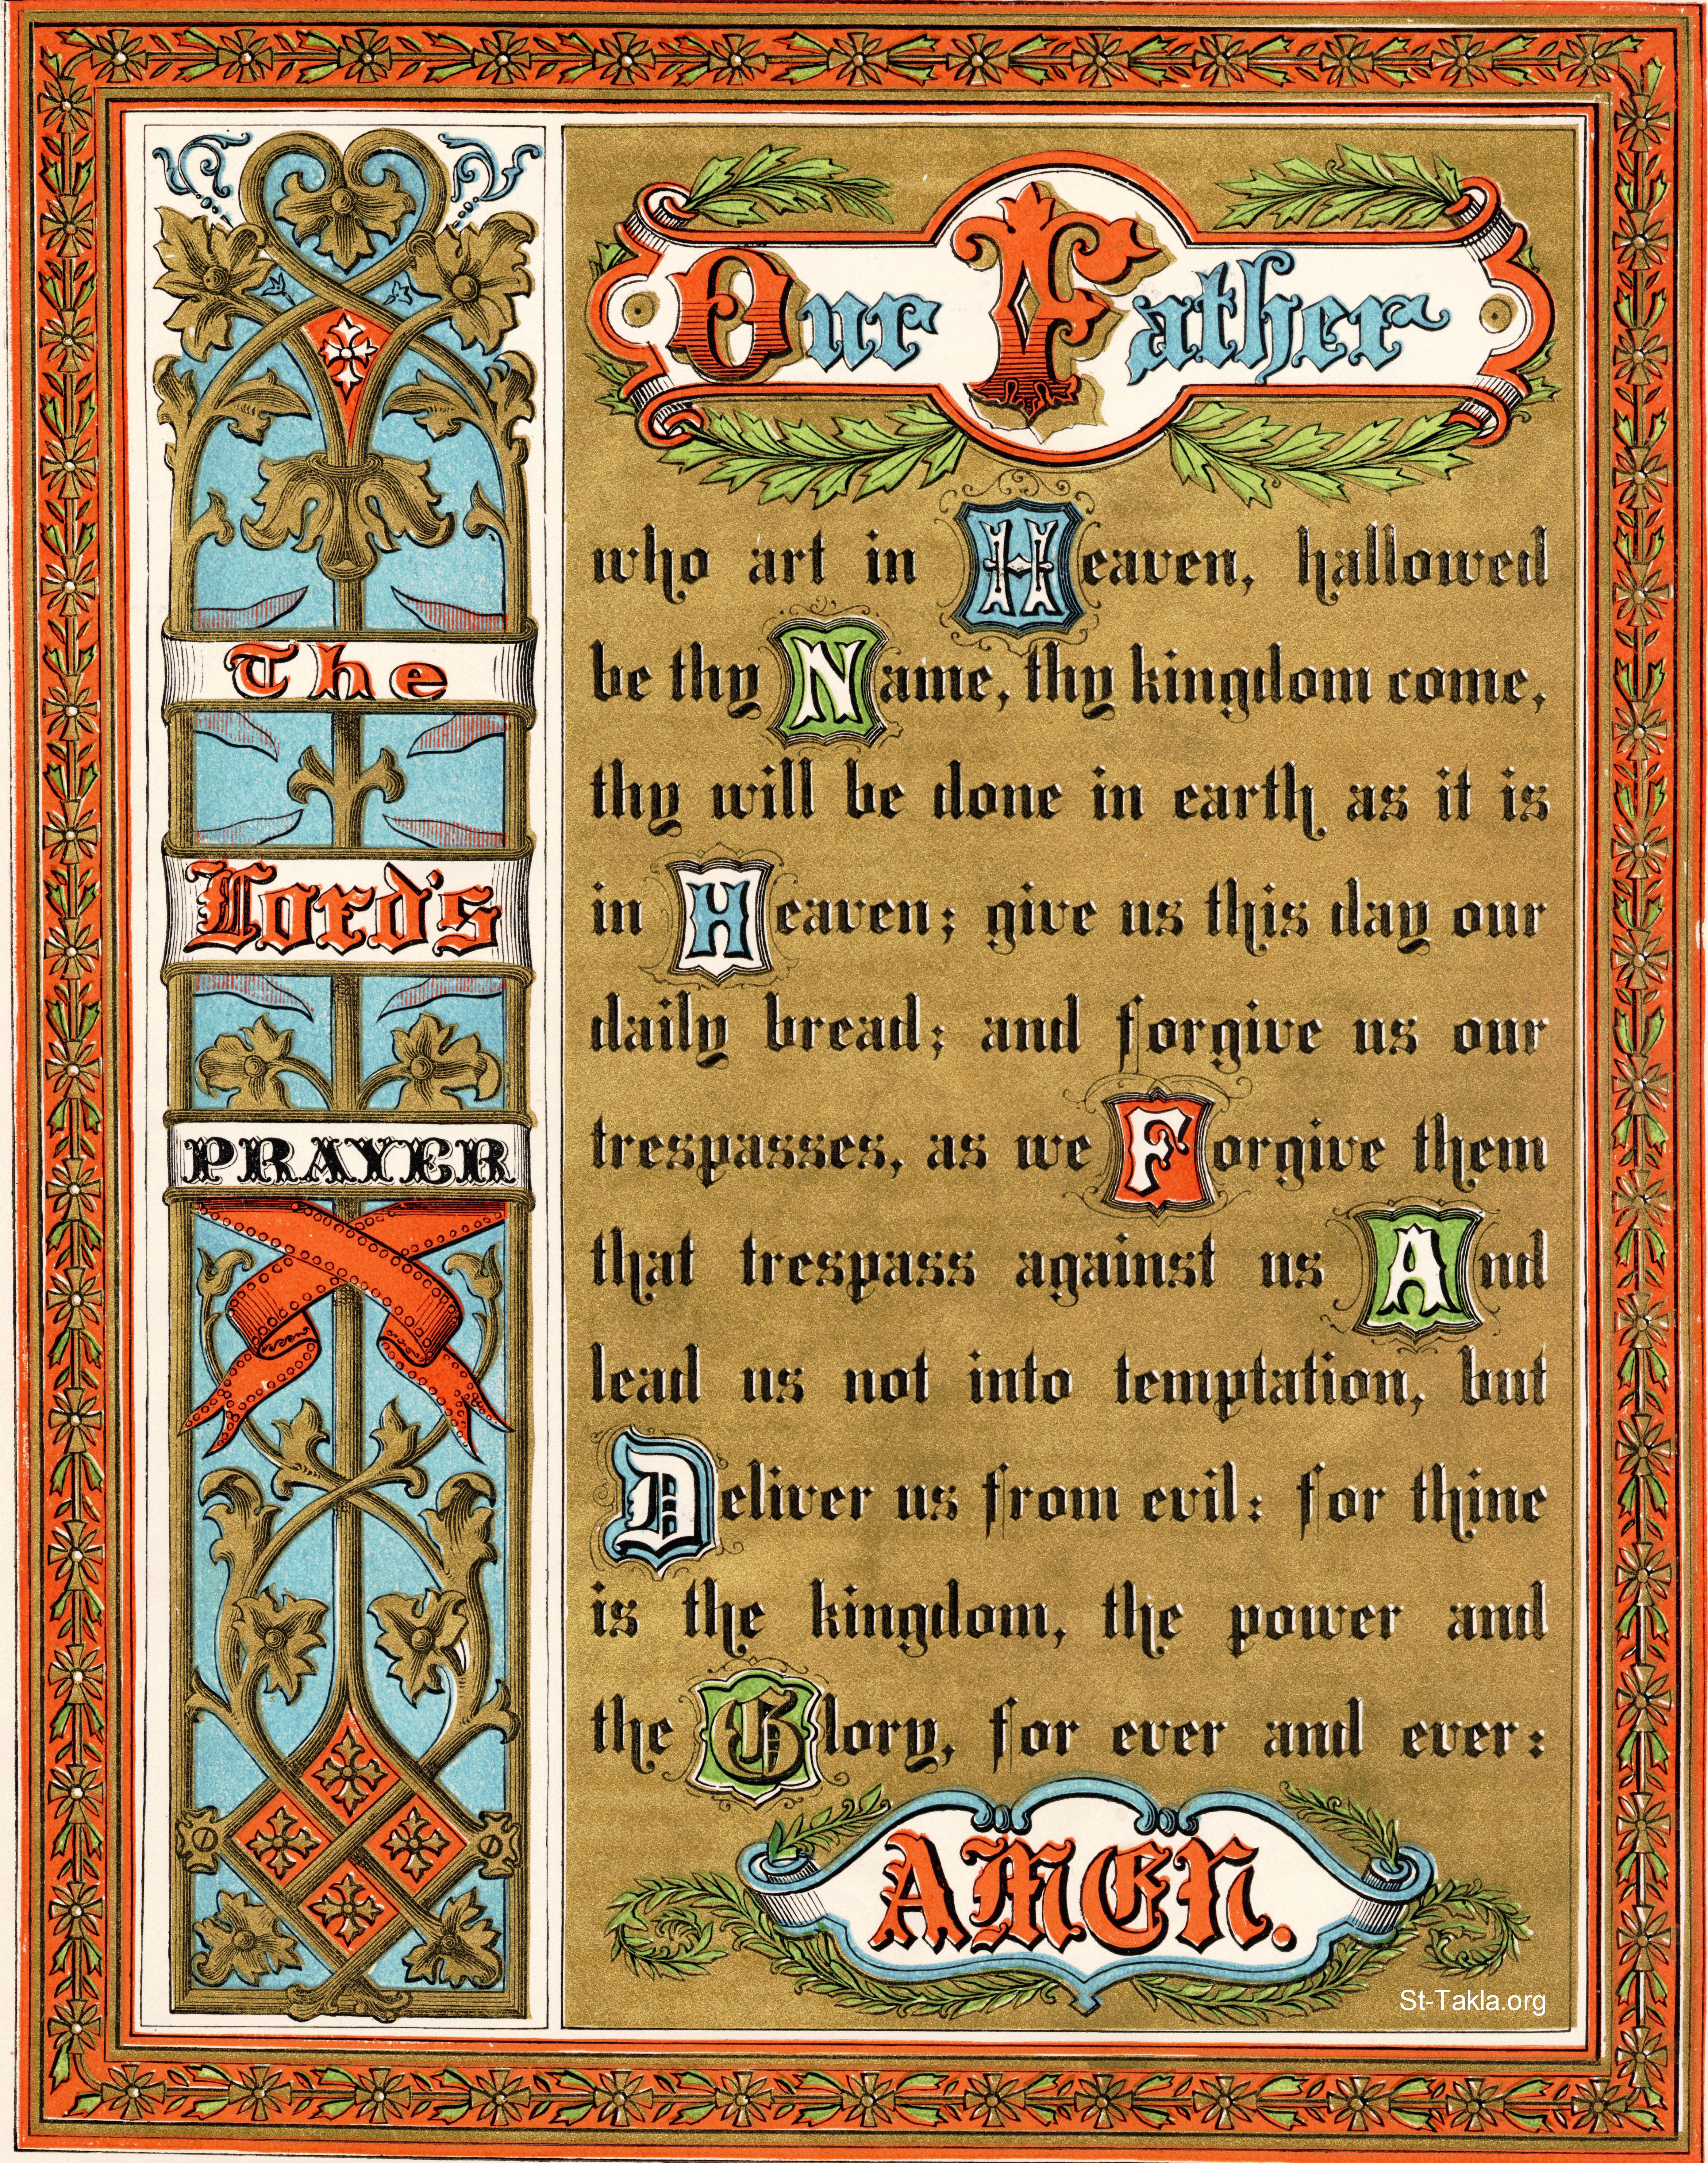 The
Lord's
PRAYER
Our Father
who art in Heaven, hallowed
be thy Name, thy kingdom come,
thy will be done in earth as it is
in Heaven; give us this day our
daily bread; and forgive us our
trespasses, as we Forgive them
that trespass against us And
lead us not into temptation, but
Deliver us from evil: for thine
is the kingdom, the power and
the Glory, for ever and ever:
AMEN.
St-Takla.org